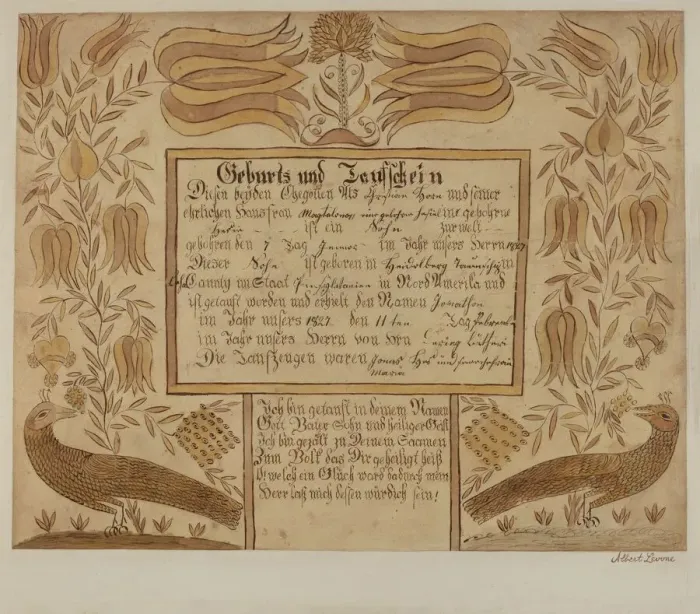 Geburts und Taufschein
Diesen beyden Ehegatten Als Christian Horn und seiner
ehrlichen Hausfrau Magdalena eine gebohrne
ist ein Sohn zur welt
gebohren den 7 Tag Jenner im Jahr unsers Herrn 1827
Dieser Sohn ist geboren in Heidelberg Taunschip
Caunty im Staat Pinsylvanien in Nord Amerika und
ist getauft worden und erhielt den Namen Jonathan
im Jahr unsers 1827 den 11 ten Tag Febru
im Jahr unsers Herrn von Hrn
Die Taufzeugen waren Jonas und
Maria
Ich bin getauft in deinem Namen
Gott Vater Sohn und heiliger Geist
Ich bin gezält zu Deinem Saamen
Zum Volk das Dir geheiligt heiß
O! welch ein Glück ward dadurch mein
Herr laß mich dessen würdich sein!
Albert Levone